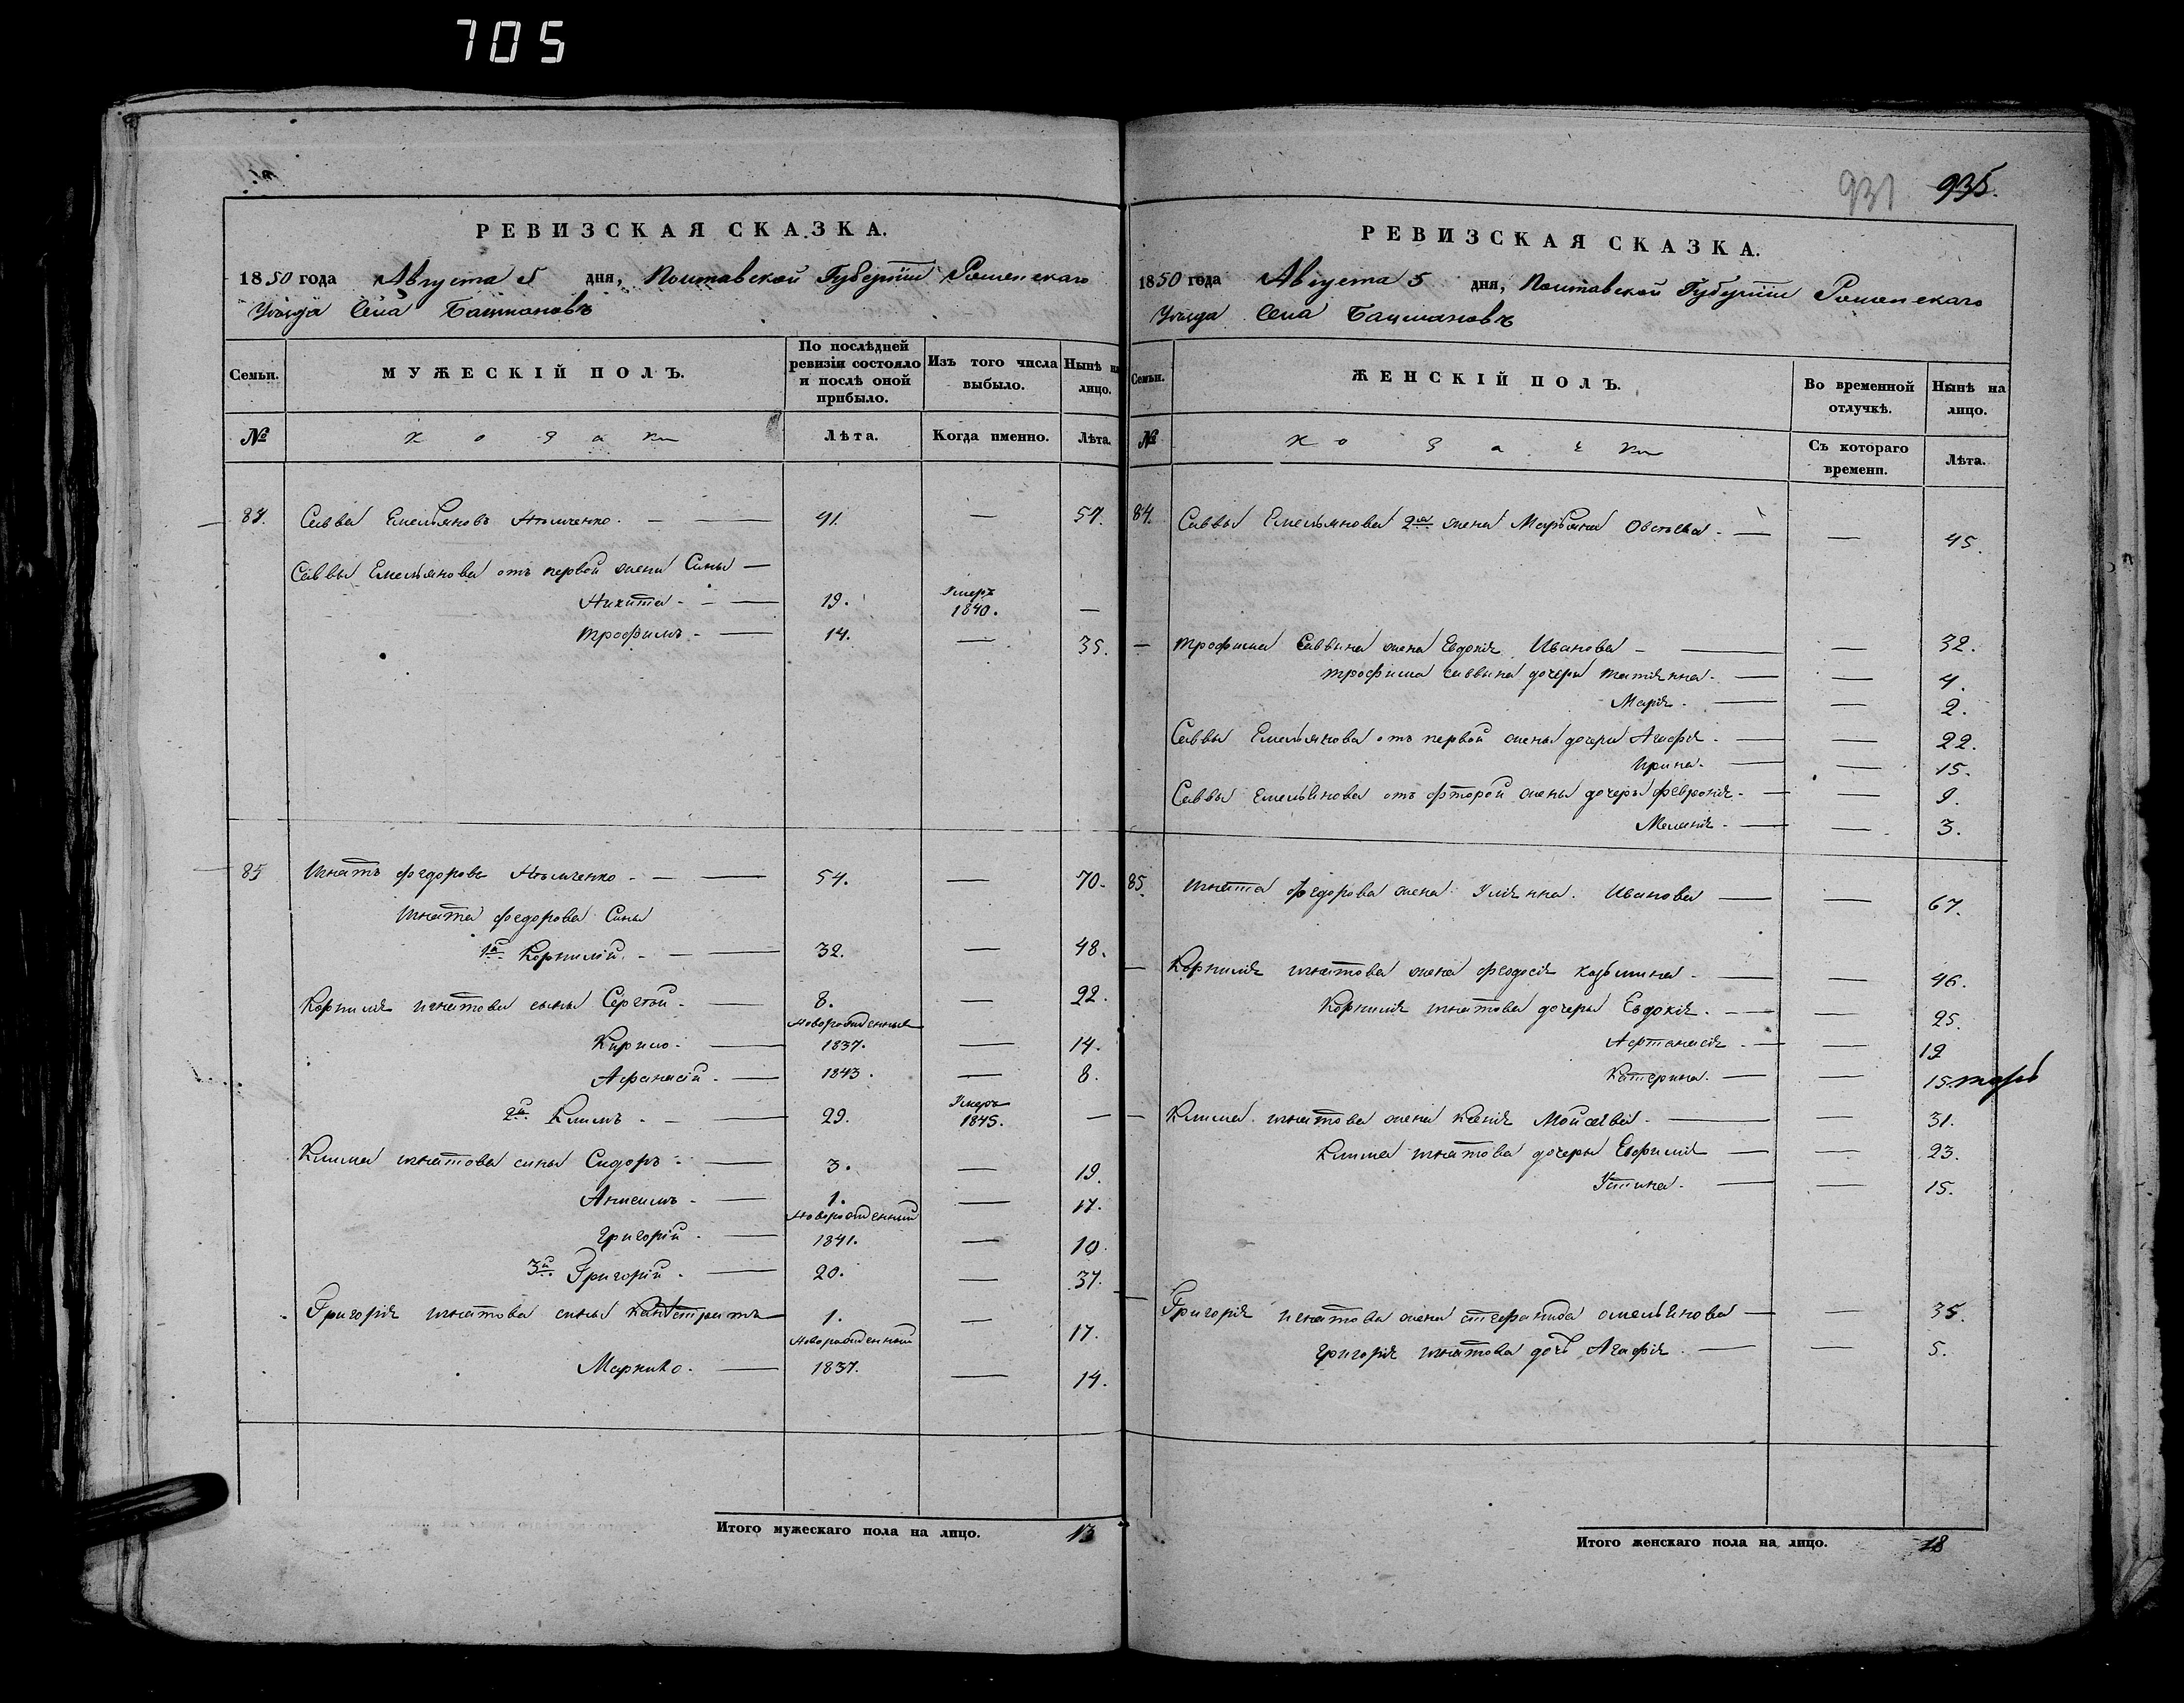 705
РЕВИЗСКАЯ СКАЗКА.
1850 года Августа 5 дня, Полтавской Губерніи Роменскаго
Уѣзда Села Бацмановъ
Семьи.
МУЖЕСКІЙ ПОЛЪ.
По послѣдней ревизіи состояло и послѣ оной прибыло.
Изъ того числа выбыло.
Нынѣ на лицо.
№
Козаки
Лѣта.
Когда именно.
Лѣта.
84. Савва Емельяновъ 41. — 57.
Саввы Емельянова отъ первой жены Сыны —
Никита - — 19. Умеръ 1840. —
Трофимъ - — 14. — 35.
85 Игнатъ Федоровъ - — 54. — 70.
Игната Федорова Сыны
1й Корнилій. - — 32. — 48.
Корнилія Игнатова сыны Сергѣй - — 8. — 22.
Новорожденные
Кирило - — 1837. — 14.
Афанасій - — 1843. — 8.
2й Климъ - — 29. Умеръ 1845. —
Клима Игнатова сыны Сидоръ - — 3. — 19.
Анисимъ - — 1. — 17.
Новорожденный
Григорій - — 1841. — 10.
3й Григорій - — 20. — 37.
Григорія Игнатова сыны — 1. — 17.
Новорожденный
Маркико. — 1837. — 14.
Итого мужескаго пола на лицо. 13
931 935.
РЕВИЗСКАЯ СКАЗКА.
1850 года Августа 5 дня, Полтавской Губерніи Роменскаго
Уѣзда Села Бацмановъ
Семьи.
ЖЕНСКІЙ ПОЛЪ.
Во временной отлучкѣ.
Нынѣ на лицо.
№
Козачки
Съ котораго времени.
Лѣта.
84. Саввы Емельянова 2я жена Марьяна — — 45.
Трофима Саввина жена Евдокія Иванова - — — 32.
Трофима Саввина дочери Татіянна - — — 4.
Марія - — — 2.
Саввы Емельянова отъ первой жены дочери Агафія - — — 22.
Ирина - — — 15.
Саввы Емельянова отъ фторой жены дочеры Февронія - — — 9.
Меланія - — — 3.
85. Игната Федорова жена Уліянна Иванова — — 67.
Корнилія Игнатова жена Феодосія Козьмина - — — 46.
Корнилія Игнатова дочеры Евдокія - — — 25.
— — 19
Катерина. — — 15.
Клима Игнатова жена Ксенія Мойсѣева - — — 31.
Клима Игнатова дочеры Евфимія — — 23.
Устина - — — 15.
Григорія Игнатова жена Стефанида Омельянова — — 35.
Григорія Игнатова дочь Агафія - — — 5.
Итого женскаго пола на лицо. 18